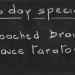 o day specia
oached brai
auce tarator